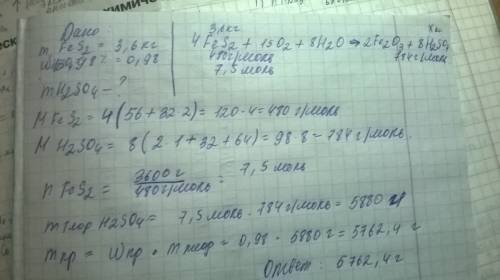 Дано:
m FeS₂ = 3,6 кг
= 0,98
m H₂SO₄ - ?
4 FeS₂ + 15O₂ + 8H₂O → 2Fe₂O₃ + 8H₂SO₄
480 г/моль 784 г/моль
7,5 моль
M FeS₂ = 4 (56 + 32·2) = 120·4 = 480 г/моль
M H₂SO₄ = 8 (2·1 + 32 + 64) = 98·8 = 784 г/моль.
n FeS₂ = 3600 г / 480 г/моль = 7,5 моль
m теор H₂SO₄ = 7,5 моль · 784 г/моль = 5880 г
m пр = W пр · m теор = 0,98 · 5880 г = 5762,4 г
Ответ: 5762,4 г